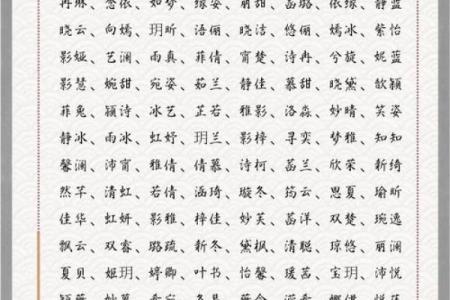 晓云、向嫣、玥昕、浯俪、晓洁、悠俪、嫣冰、紫怡
再娅、艺澜、雨真、菲倩、甯楚、诗冉、兮旋、妮蓝
影慧、婉甜、宛姿、茹兰、静佳、慕甜、晓黛、歆颖
菲兔、颖诗、冰艺、芷若、雅影、洛淼、妙晴、笑姿
静冰、雨冰、虹妤、玥兰、影梓、寻奕、梦雅、知知
馨澜、沛甯、雅倩、倩慕、诗柯、菡兰、欣荣、新绮
然芊、清虹、若倩、涵琦、璇冬、筠云、思夏、瑜昕
佳华、虹妍、影雅、梓佳、妙芙、菡洋、双楚、琬逸
飘云、双睿、璐疏、新冬、黛枫、清聪、琼悠、丽澜
夏贝、姬玥、婷卿、叶书、怡馨、瑗菡、宝玥、沛悦